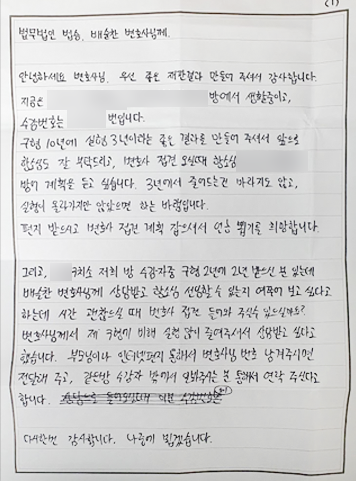 (1)
법무법인 법승, 배슬찬 변호사님께.
안녕하세요 변호사님. 우선 좋은 재판결과 만들어 주셔서 감사합니다.
지금은 방에서 생활중이고,
수감번호는 번입니다.
구형 10년에 실형 3년이라는 좋은 결과를 만들어 주셔서 앞으로
항소심도 잘 부탁드리고, 변호사 접견 오실때 항소심
방어 계획을 듣고 싶습니다. 3년에서 줄어드는건 바라지도 않고,
실형이 올라가지만 않았으면 하는 바램입니다.
편지 받으시고 변호사 접견 계획 잡으셔서 연휴 뵙기를 희망합니다.
그리고, 구치소 저희 방 수감자중 구형 2년에 2년 받으신 분 있는데
배슬찬 변호사님께 상담받고 항소심 선임할 수 있는지 여쭈어 보고 싶다고
하는데 시간 괜찮으실 때 변호사 접견 들어와 주실수 있으실까요?
변호사님께서 제 구형에 비해 실형 많이 줄여주셔서 상담받고 싶다고
했습니다. 부모님이나 인터넷편지 통해서 변호사님 번호 남겨주시면
전달해 주고, 같은방 수감자 밖에서 봐주는 분 통해서 연락 주신다고
합니다.
다시한번 감사합니다. 나중에 뵙겠습니다.